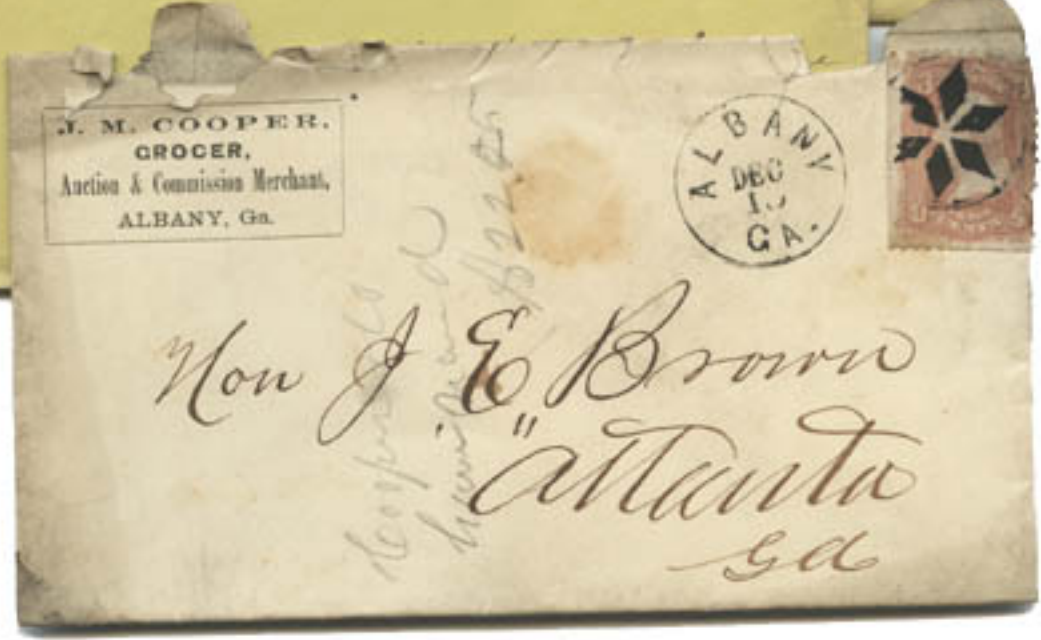 J. M. COOPER,
GROCER,
Auction & Commission Merchant,
ALBANY, Ga.
ALBANY
DEC
GA.
Hon J. E. Brown
"Atlanta
Ga